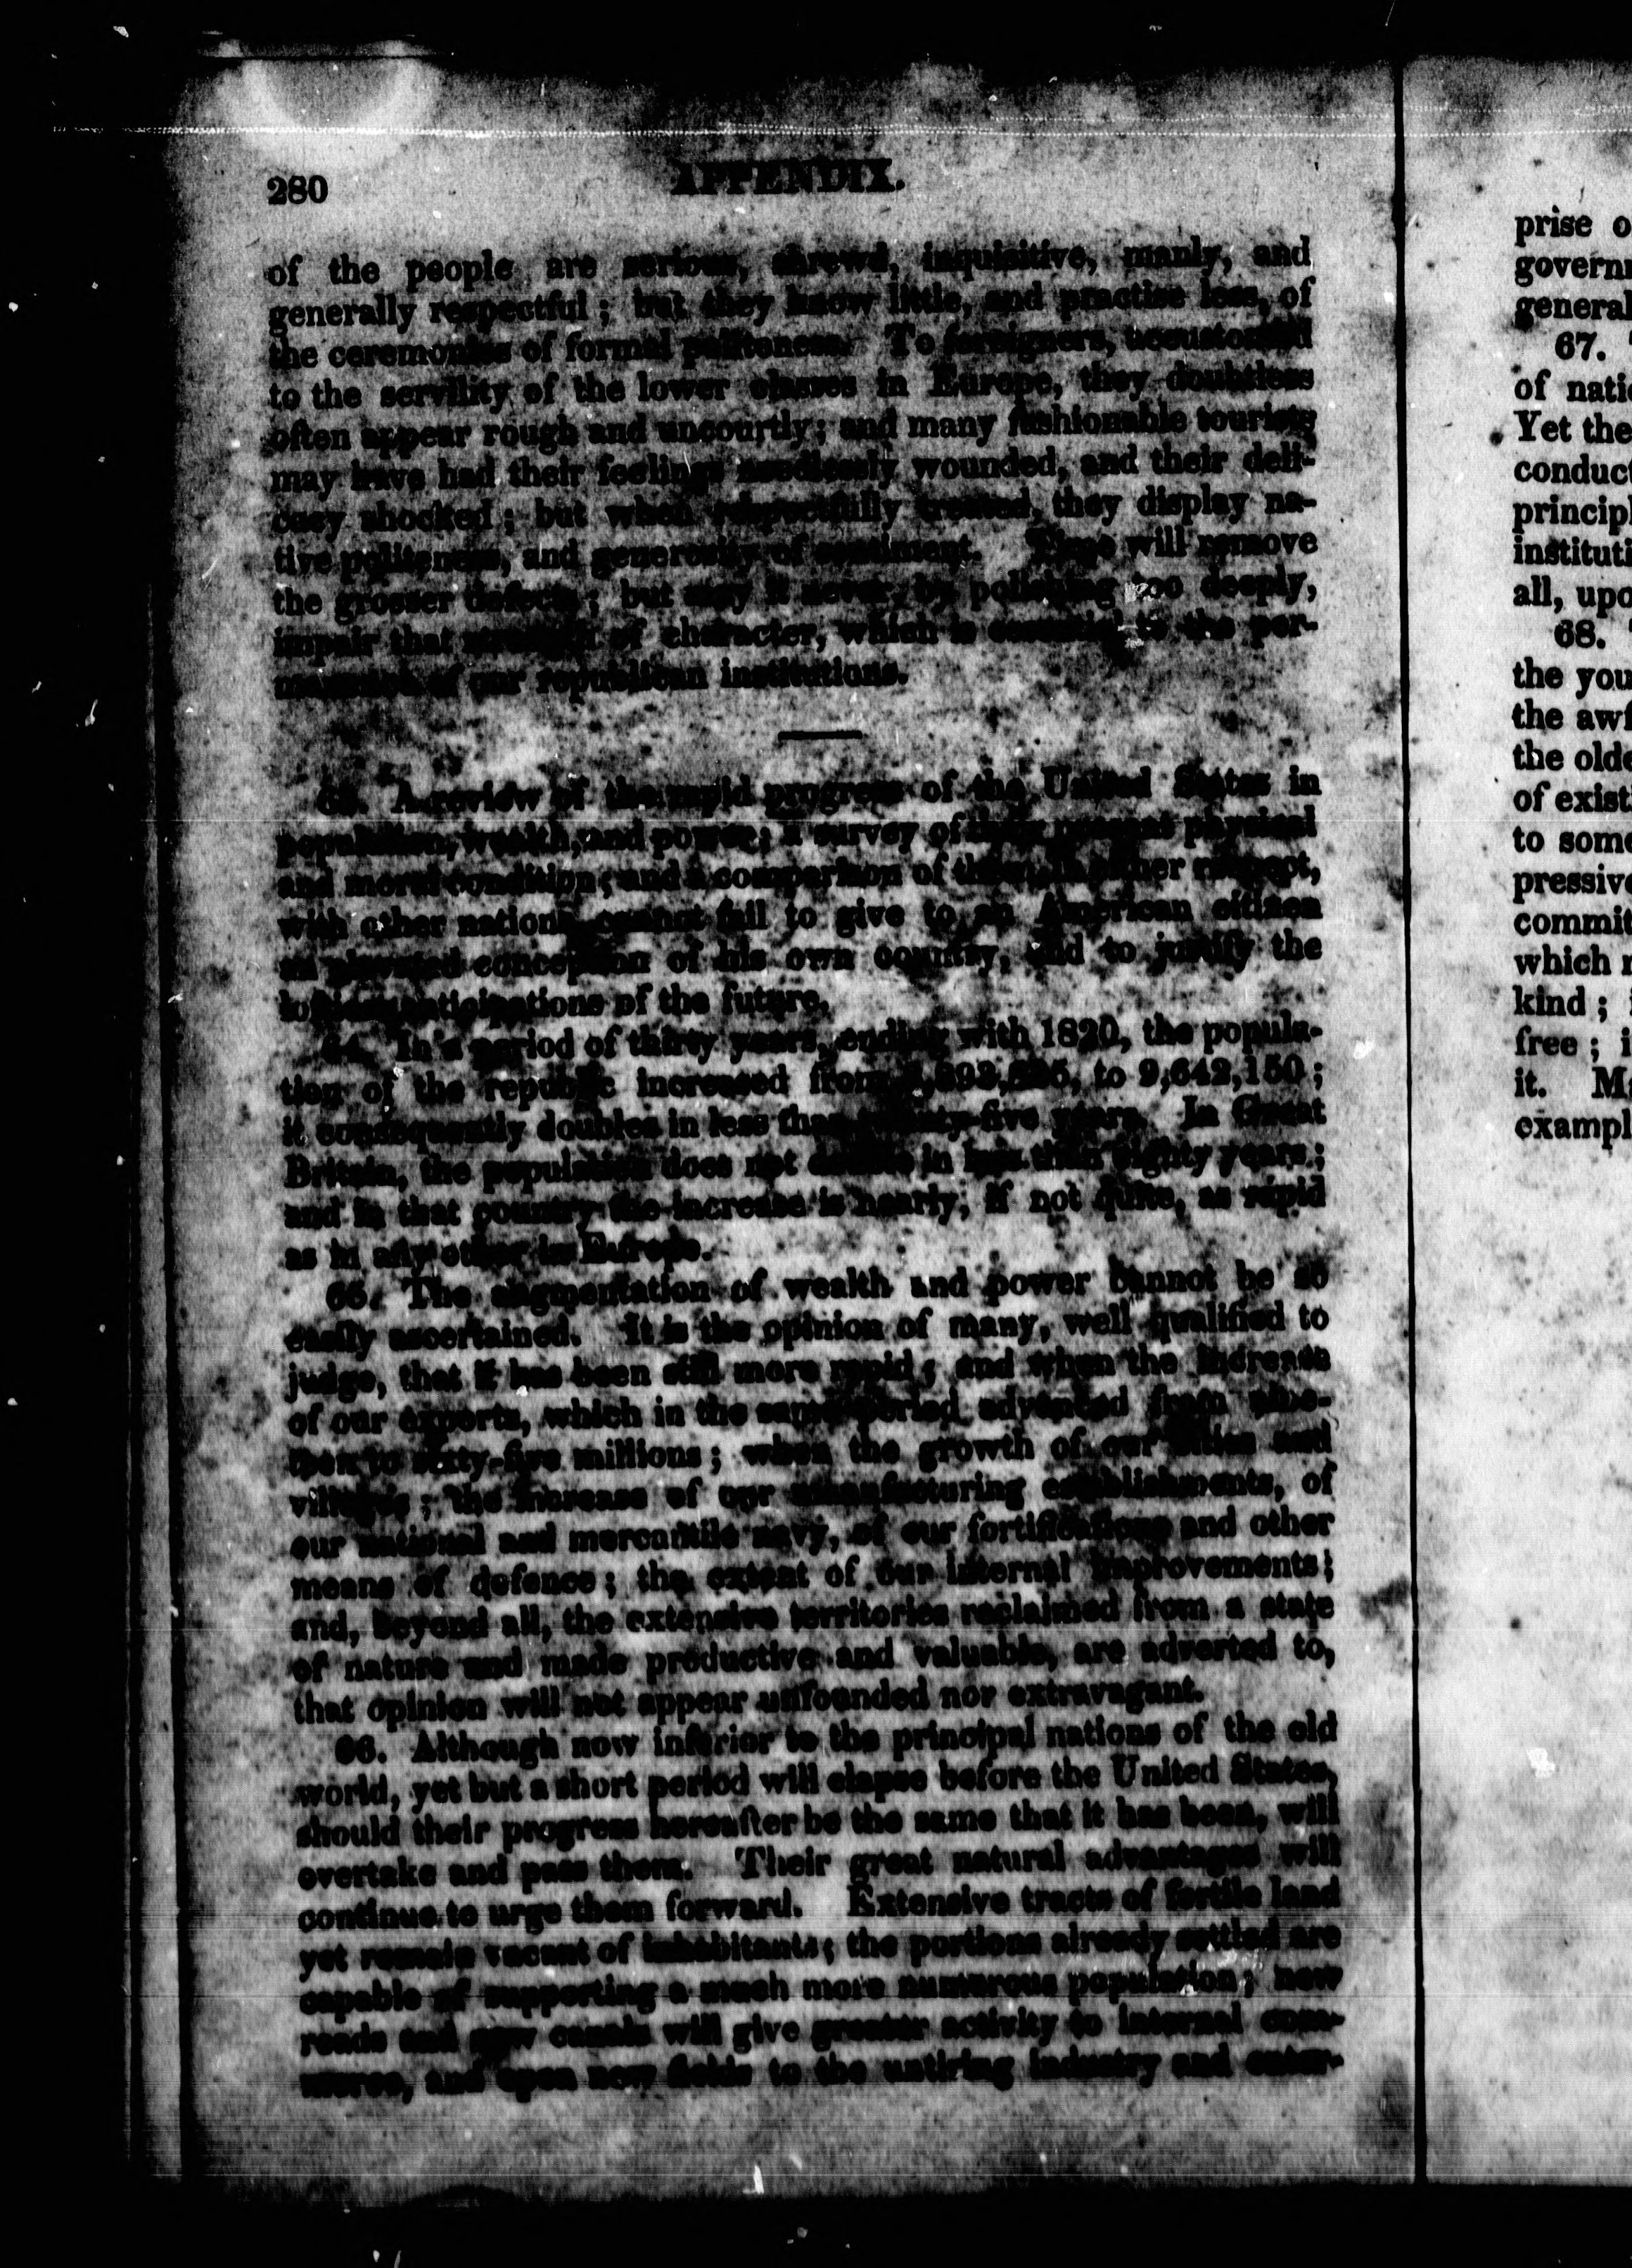 280
APPENDIX.
of the people are serious, shrewd, inquisitive, manly, and
generally respectful; but they know little, and practise less, of
the ceremonies of formal politeness. To foreigners, accustomed
to the servility of the lower classes in Europe, they doubtless
often appear rough and uncourtly; and many fashionable tourists
may have had their feelings needlessly wounded, and their deli-
cacy shocked; but when respectfully treated, they display na-
tive politeness, and generosity of sentiment. Time will remove
the grosser defects; but may it never, by polishing too deeply,
impair that strength of character, which is essential to the per-
manence of our republican institutions.
63. A review of the rapid progress of the United States in
population, wealth, and power; a survey of their present physical
and moral condition; and a comparison of them, in either respect,
with other nations, cannot fail to give to an American citizen
an elevated conception of his own country, and to justify the
loftiest anticipations of the future.
64. In a period of thirty years, ending with 1820, the popula-
tion of the republic increased from to 9,642,150;
it consequently doubles in less than twenty-five years. In Great
Britain, the population does not double in less than eighty years;
and in that country the increase is nearly, if not quite, as rapid
as in any other in Europe.
65. The augmentation of wealth and power cannot be so
easily ascertained. It is the opinion of many, well qualified to
judge, that it has been still more rapid; and when the increase
of our exports, which in the same period advanced from nine-
teen to sixty-five millions; when the growth of our cities and
villages; the increase of our manufacturing establishments, of
our national and mercantile navy, of our fortifications and other
means of defence; the extent of our internal improvements;
and, beyond all, the extensive territories reclaimed from a state
of nature and made productive and valuable, are adverted to,
that opinion will not appear unfounded nor extravagant.
66. Although now inferior to the principal nations of the old
world, yet but a short period will elapse before the United States,
should their progress hereafter be the same that it has been, will
overtake and pass them. Their great natural advantages will
continue to urge them forward. Extensive tracts of fertile land
yet remain vacant of inhabitants; the portions already settled are
capable of supporting a much more numerous population; new
roads and new canals will give greater activity to internal com-
merce, and open new fields to the untiring industry and enter-
prise o
governm
general
67.
of natio
Yet the
conduct
principl
instituti
all, upo
68.
the you
the awf
the olde
of exist
to some
pressive
commit
which
kind;
free; i
it. Ma
exampl